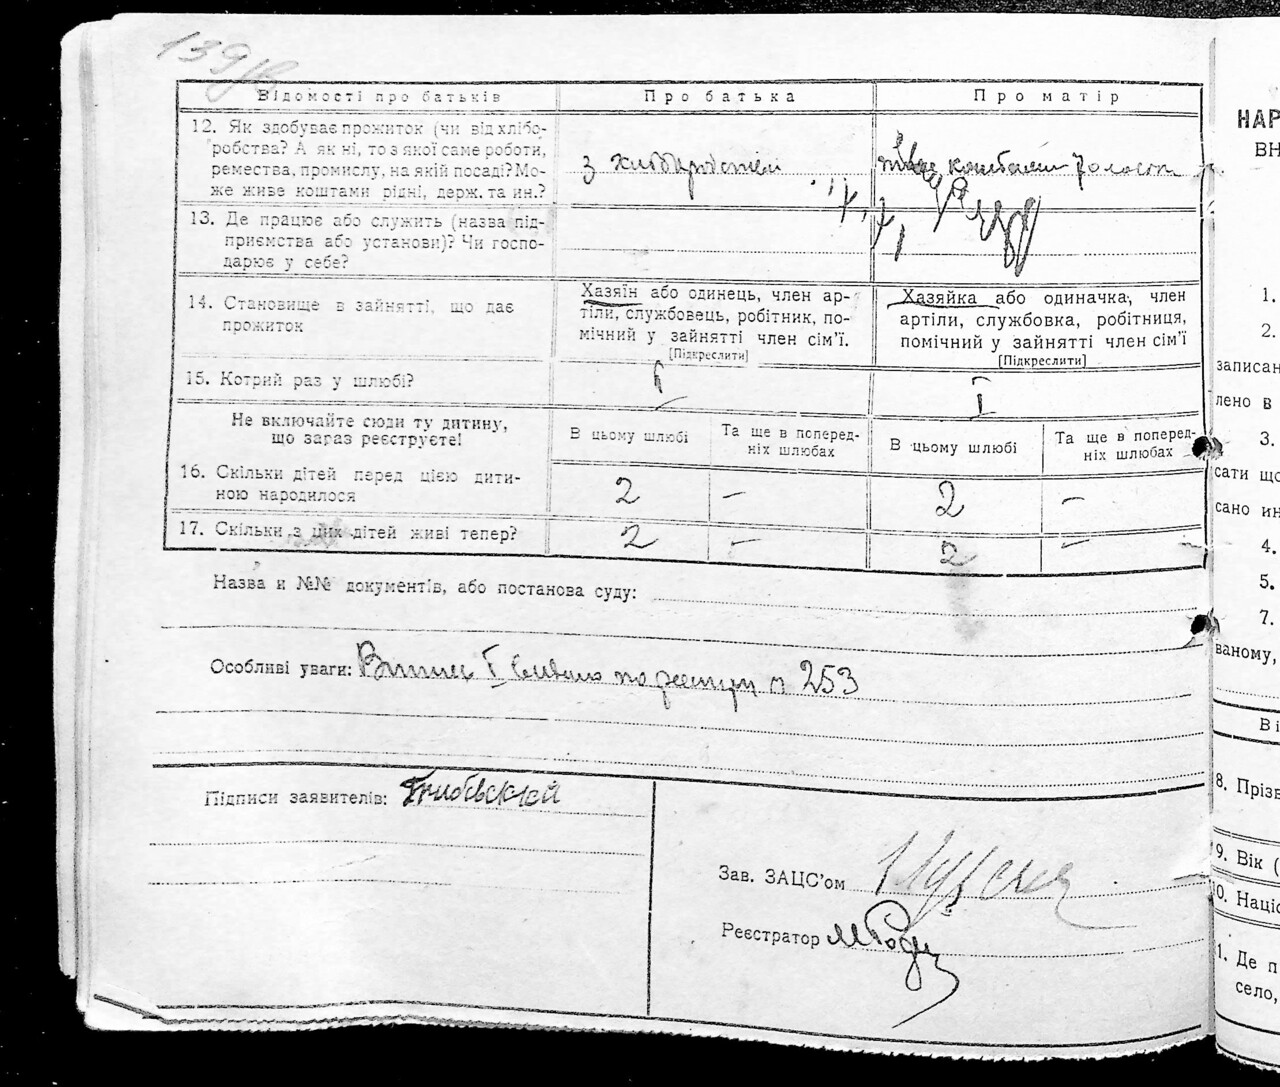 139
Відомості про батьків Про батька Про матір
12. Як здобуває прожиток (чи від хлібо-
робства? А як ні, то з якої саме роботи,
ремества, промислу, на якій посаді? Мо-
же живе коштами рідні, держ. та ин.?
з хліборобства
коштами
13. Де працює або служить (назва під-
приємства або установи)? Чи госпо-
дарює у себе?
14. Становище в зайнятті, що дає
прожиток
Хазяїн або одинець, член ар-
тіли, службовець, робітник, по-
мічний у зайнятті член сім'ї.
[Підкреслити]
Хазяйка або одиначка, член
артіли, службовка, робітниця,
помічний у зайнятті член сім'ї
[Підкреслити]
15. Котрий раз у шлюбі? I I
Не включайте сюди ту дитину,
що зараз реєструєте!
В цьому шлюбі
Та ще в поперед-
ніх шлюбах
В цьому шлюбі
Та ще в поперед-
ніх шлюбах
16. Скільки дітей перед цією дити-
ною народилося
2 – 2 –
17. Скільки з цих дітей живі тепер? 2 – 2 –
Назва и №№ документів, або постанова суду:
Особливі уваги: по реестру n 253
Підписи заявителів:
Зав. ЗАЦС'ом
Реєстратор
НАР
ВН
1.
2.
записан
лено в
3.
сати що
сано ин
4.
5.
7.
ваному,
Ві
8. Прізв
9. Вік (
0. Націс
1. Де п
село,